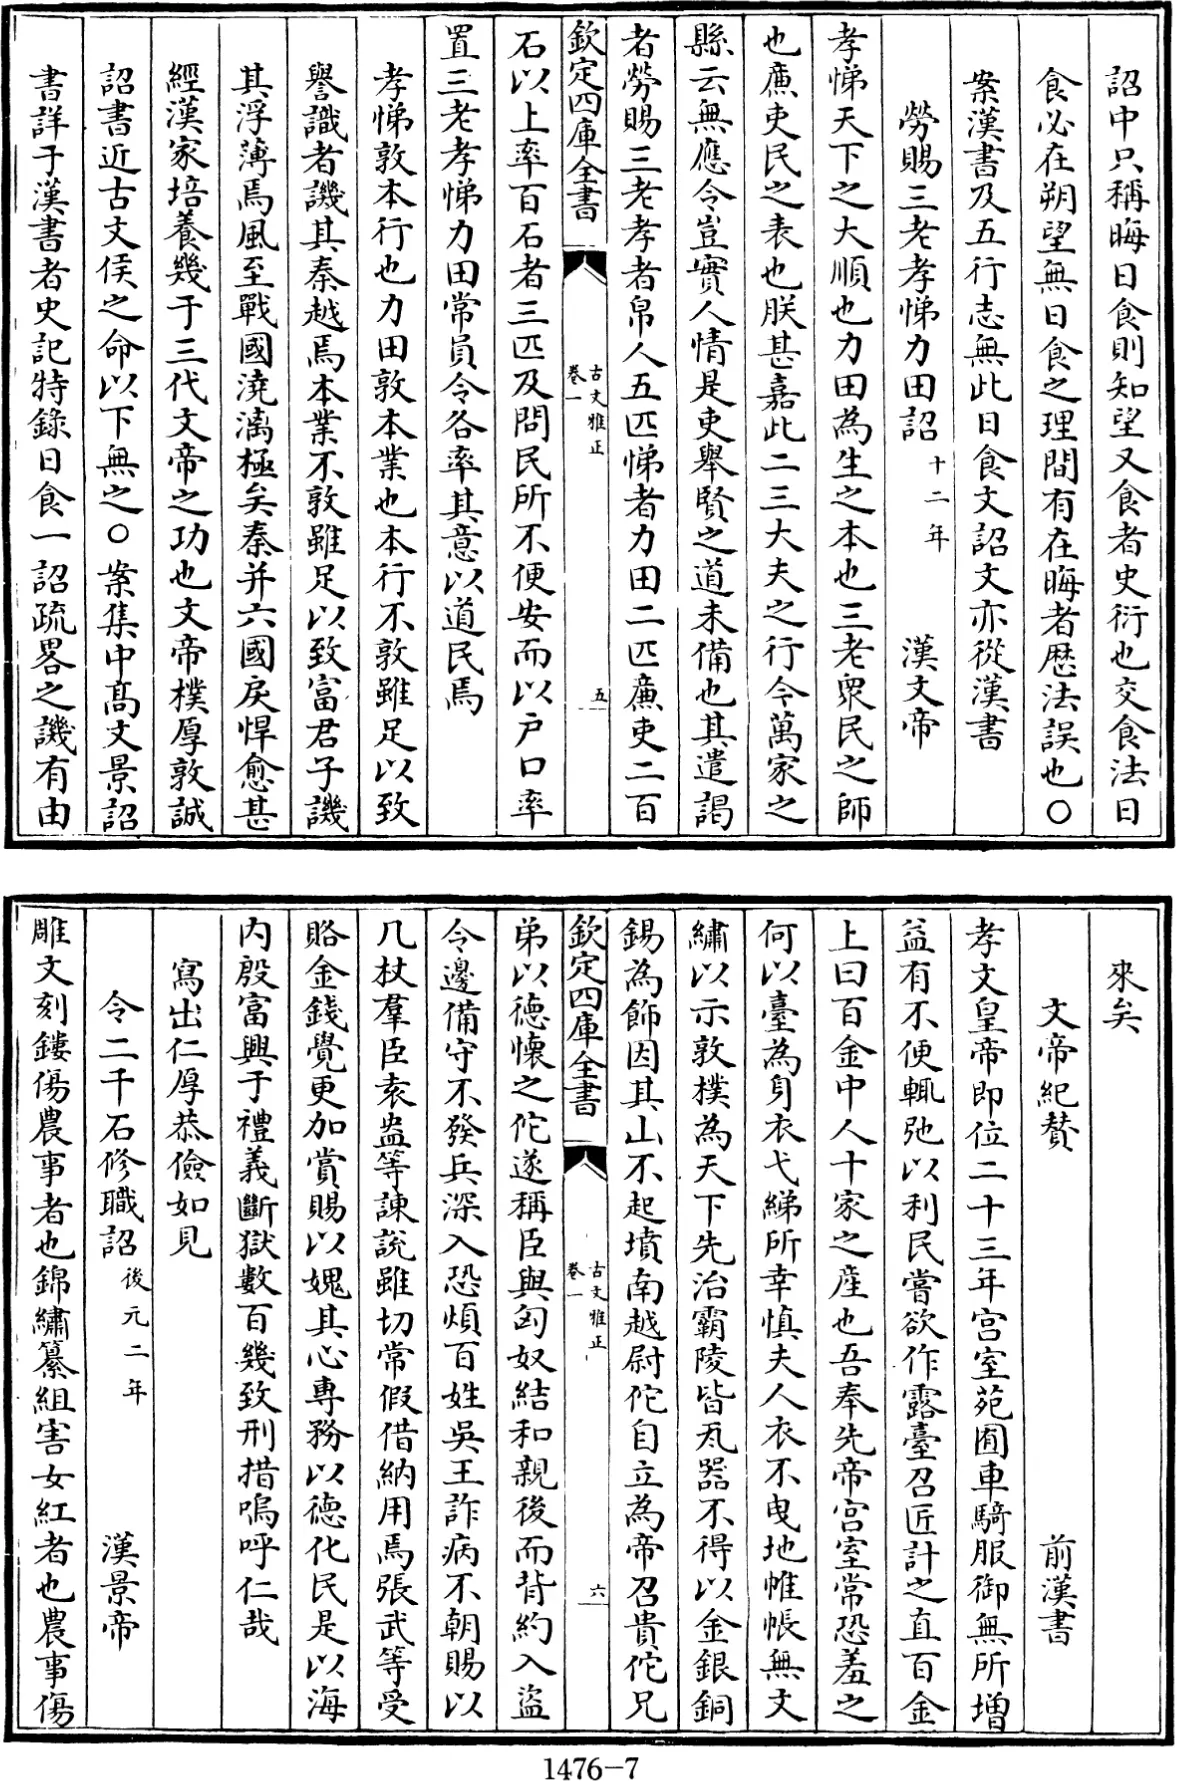 詔中只稱晦日食則知望又食者史衍也交食法日
食必在朔望無日食之理間有在晦者歴法誤也○
案漢書及五行志無此日食文詔文亦從漢書
勞賜三老孝悌力田詔十二年 漢文帝
孝悌天下之大順也力田為生之本也三老衆民之師
也亷吏民之表也朕甚嘉此二三大夫之行今萬家之
縣云無應令豈實人情是吏舉賢之道未備也其遣謁
者勞賜三老孝者帛人五匹悌者力田二匹亷吏二百
欽定四庫全書 古文雅正 卷一 五
石以上率百石者三匹及問民所不便安而以户口率
置三老孝悌力田常員令各率其意以道民焉
孝悌敦本行也力田敦本業也本行不敦雖足以致
譽識者譏其秦越焉本業不敦雖足以致富君子譏
其浮薄焉風至戰國澆漓極矣秦并六國戾悍愈甚
經漢家培養幾于三代文帝之功也文帝樸厚敦誠
詔書近古文侯之命以下無之○案集中髙文景詔
書詳于漢書者史記特錄日食一詔疏畧之譏有由
來矣
文帝紀贊 前漢書
孝文皇帝即位二十三年宫室苑囿車騎服御無所增
益有不便輒弛以利民嘗欲作露臺召匠計之直百金
上曰百金中人十家之産也吾奉先帝宫室常恐羞之
何以臺為身衣弋綈所幸慎夫人衣不曳地帷帳無文
繡以示敦樸為天下先治霸陵皆瓦器不得以金銀銅
錫為飾因其山不起墳南越尉佗自立為帝召貴佗兄
欽定四庫全書 古文雅正 卷一 六
弟以德懐之佗遂稱臣與匈奴結和親後而背約入盗
令邊備守不發兵深入恐煩百姓吳王詐病不朝賜以
几杖羣臣袁盎等諫說雖切常假借納用焉張武等受
賂金錢覺更加賞賜以媿其心專務以德化民是以海
内殷富興于禮義斷獄數百幾致刑措嗚呼仁哉
寫出仁厚恭儉如見
令二千石修職詔後元二年 漢景帝
雕文刻鏤傷農事者也錦繡纂組害女紅者也農事傷
1476-7